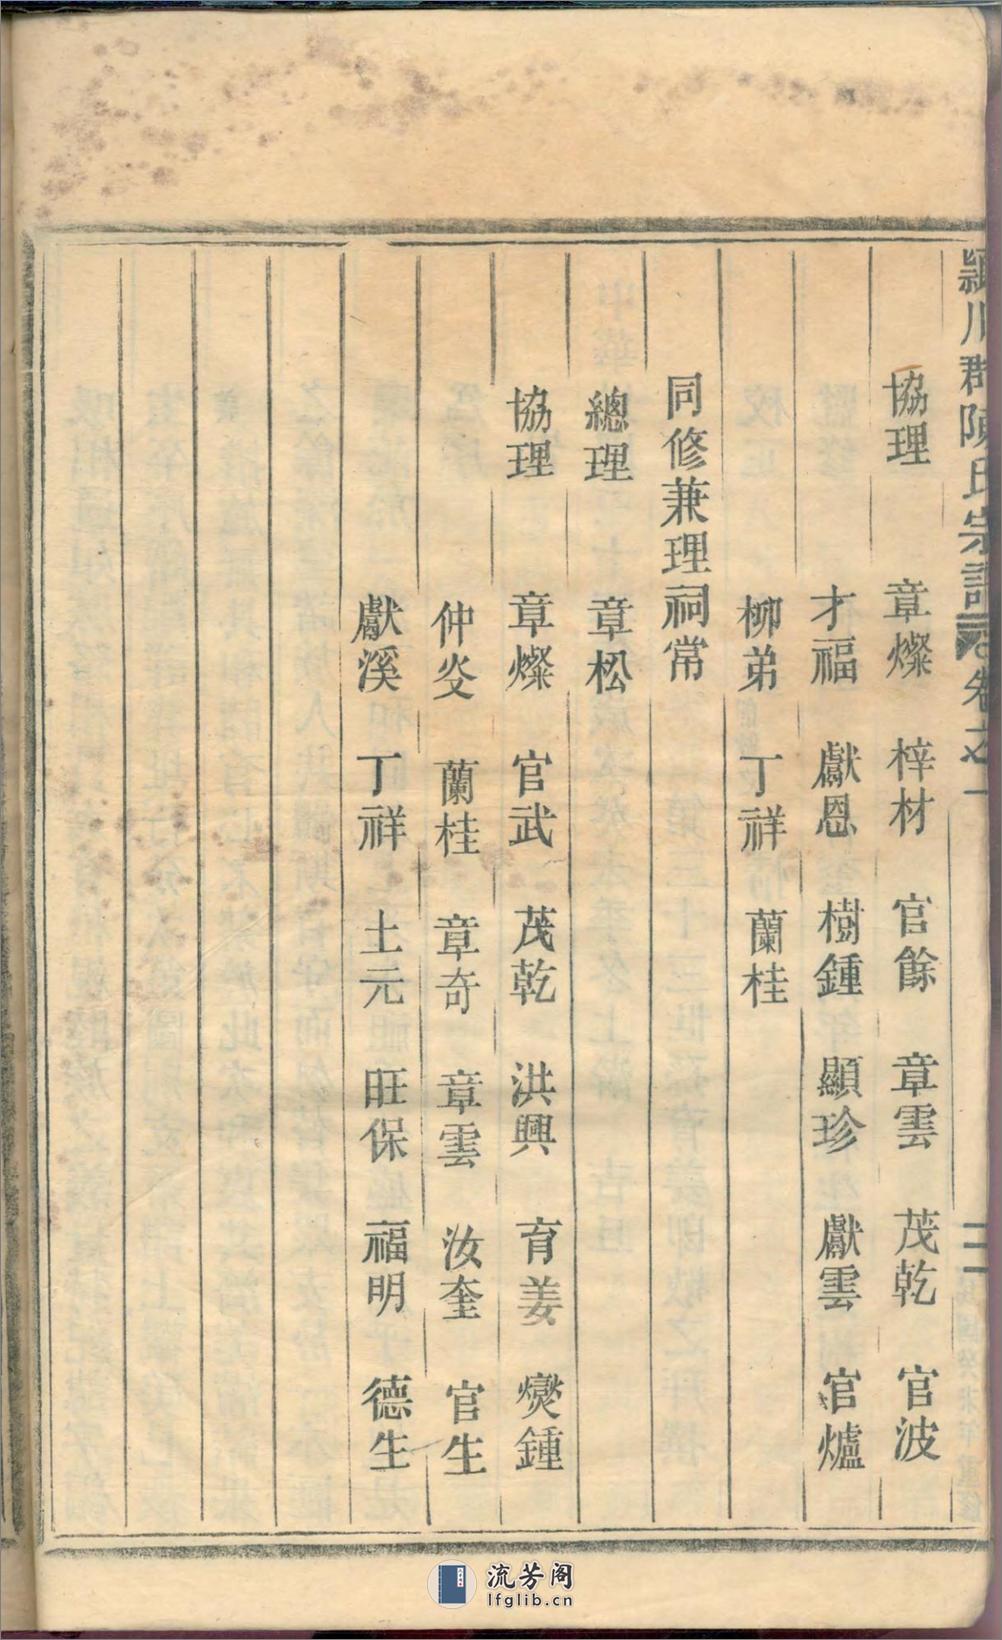 潁川郡陳氏宗譜 卷之一 二
協理 章燦 梓材 官餘 章雲 茂乾 官波
才福 獻恩 樹鍾 顯珍 獻雲 官爐
柳弟 丁祥 蘭桂
同修兼理祠常
總理 章松
協理 章燦 官武 茂乾 洪興 育姜 爕鍾
仲炎 蘭桂 章奇 章雲 汝奎 官生
獻溪 丁祥 土元 旺保 福明 德生
流芳阁
lfglib.cn